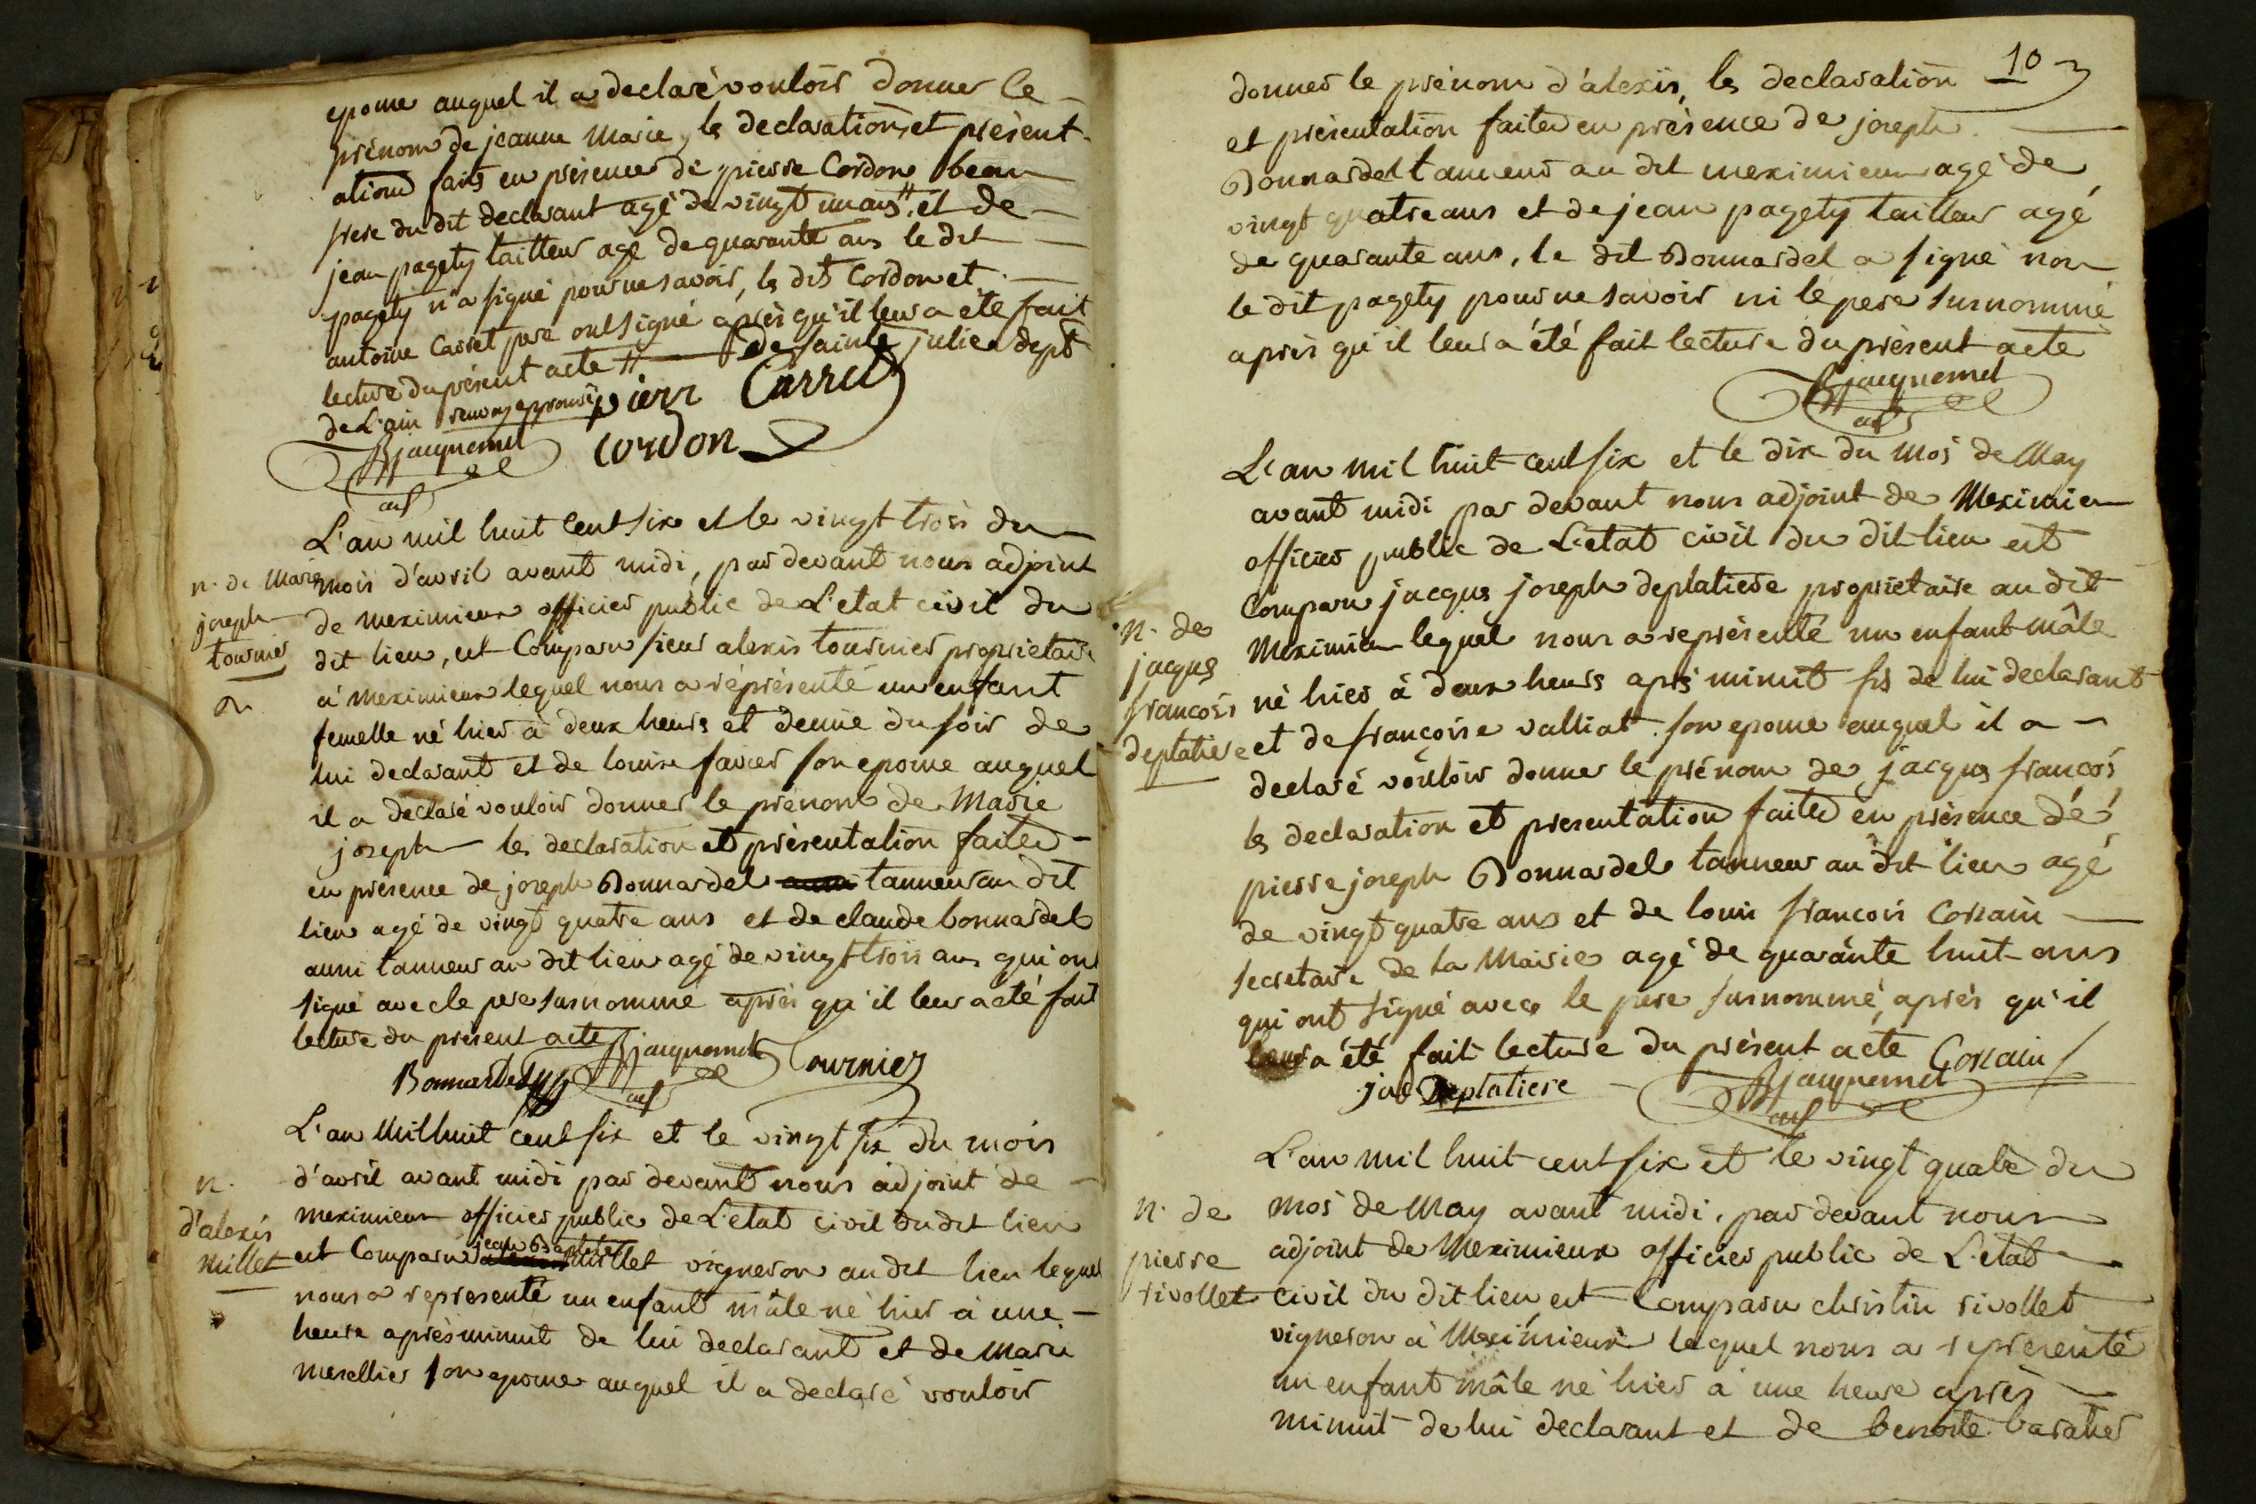 epouse auquel il a declaré vouloir donner le
prénom de jeanne Marie, les declaration, et présent-
ation faits en présence de pierre Cordon beau
frere du dit declarant agé de vingt un ans # et de
jean pagety tailleur agé de quarante ans le dit
pagety n'a signé pour ne savoir, les dits Cordon et
antoine Carret pere ont signé après qu'il leur a été fait
lecture du présent acte # de sainte julie dept
de L'ain renvoy approuvé pierr Carret
Bjacquemet cordon
adj
L'an mil huit cent six et le vingt trois du
mois d'avril avant midi, par devant nous adjoint
de meximieux officier public de L'etat civil du
dit lieu, est Comparu sieur alexis tournier proprietaire
à meximieux lequel nous a réprésenté un enfant
femelle né hier à deux heures et demie du soir de
lui declarant et de louise favier son epouse auquel
il a declaré vouloir donner le prénom de Marie
joseph les declaration et présentation faites
en présence de joseph Bonnardel aussi tanneur au dit
lieu agé de vingt quatre ans et de claude bonnardel
aussi tanneur au dit lieu agé de vingt trois ans qui ont
signé avec le pere surnommé après qu'il leur a eté fait
lecture du présent acte
n. de Marie
joseph
tournier
Bonnardel Bjacquemet Tournier
adj
L'an Mil huit cent six et le vingt six du mois
d'avril avant midi par devant nous adjoint de
meximieux officier public de L'etat civil du dit lieu
est Comparu jean Baptiste millet vigneron au dit lieu lequel
nous a represénté un enfant mâle né hier à une
heure après minuit de lui declarant et de Marie
merellier son epouse auquel il a declaré vouloir
n.
d'alexis
Millet
10
donner le prénom d'alexis, les declaration
et présentation faites en présence de joseph
Bonnardel tanneur au dit meximieux agé de
vingt quatre ans et de jean pagety tailleur agé
de quarante ans, le dit Bonnardel a signé non
le dit pagety pour ne savoir ni le pere surnommé
après qu'il leur a été fait lecture du présent acte
Bjacquemet
adj
L'an mil huit cent six et le dix du mois de May
avant midi par devant nous adjoint de Meximieu
officier public de L'etat civil du dit lieu est
Comparu jacques joseph deplatiere proprietaire au dit
Meximieu lequel nous a représenté un enfant mâle
né hier à deux heures après minuit fils de lui declarant
et de françoise valliat son epouse auquel il a
declaré vouloir donner le prénom de jacques françois
les declaration et presentation faites en présence de
pierre joseph Bonnardel tanneur au dit lieu agé
de vingt quatre ans et de louis françois Corsain
secretaire de la Mairie agé de quarante huit ans
qui ont signé avec le pere surnommé, après qu'il
leur a été fait lecture du présent acte Corsain
n. de
jacques
françois
deplatiere
jac Deplatiere Bjacquemet
adj
L'an mil huit cent six et le vingt quatre du
mois de May avant midi, par devant nous
adjoint de Meximieux officier public de L'etat
civil du dit lieu est Comparu christin rivollet
vigneron à Meximieux lequel nous a représenté
un enfant mâle né hier à une heure après
minuit de lui declarant et de benoite baratier
n. de
pierre
rivollet